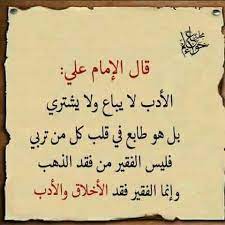 قال الإمام علي:
الأدب لا يباع ولا يشترى
بل هو طابع في قلب كل من تربي
فليس الفقير من فقد الذهب
وإنما الفقير فقد الأخلاق والأدب